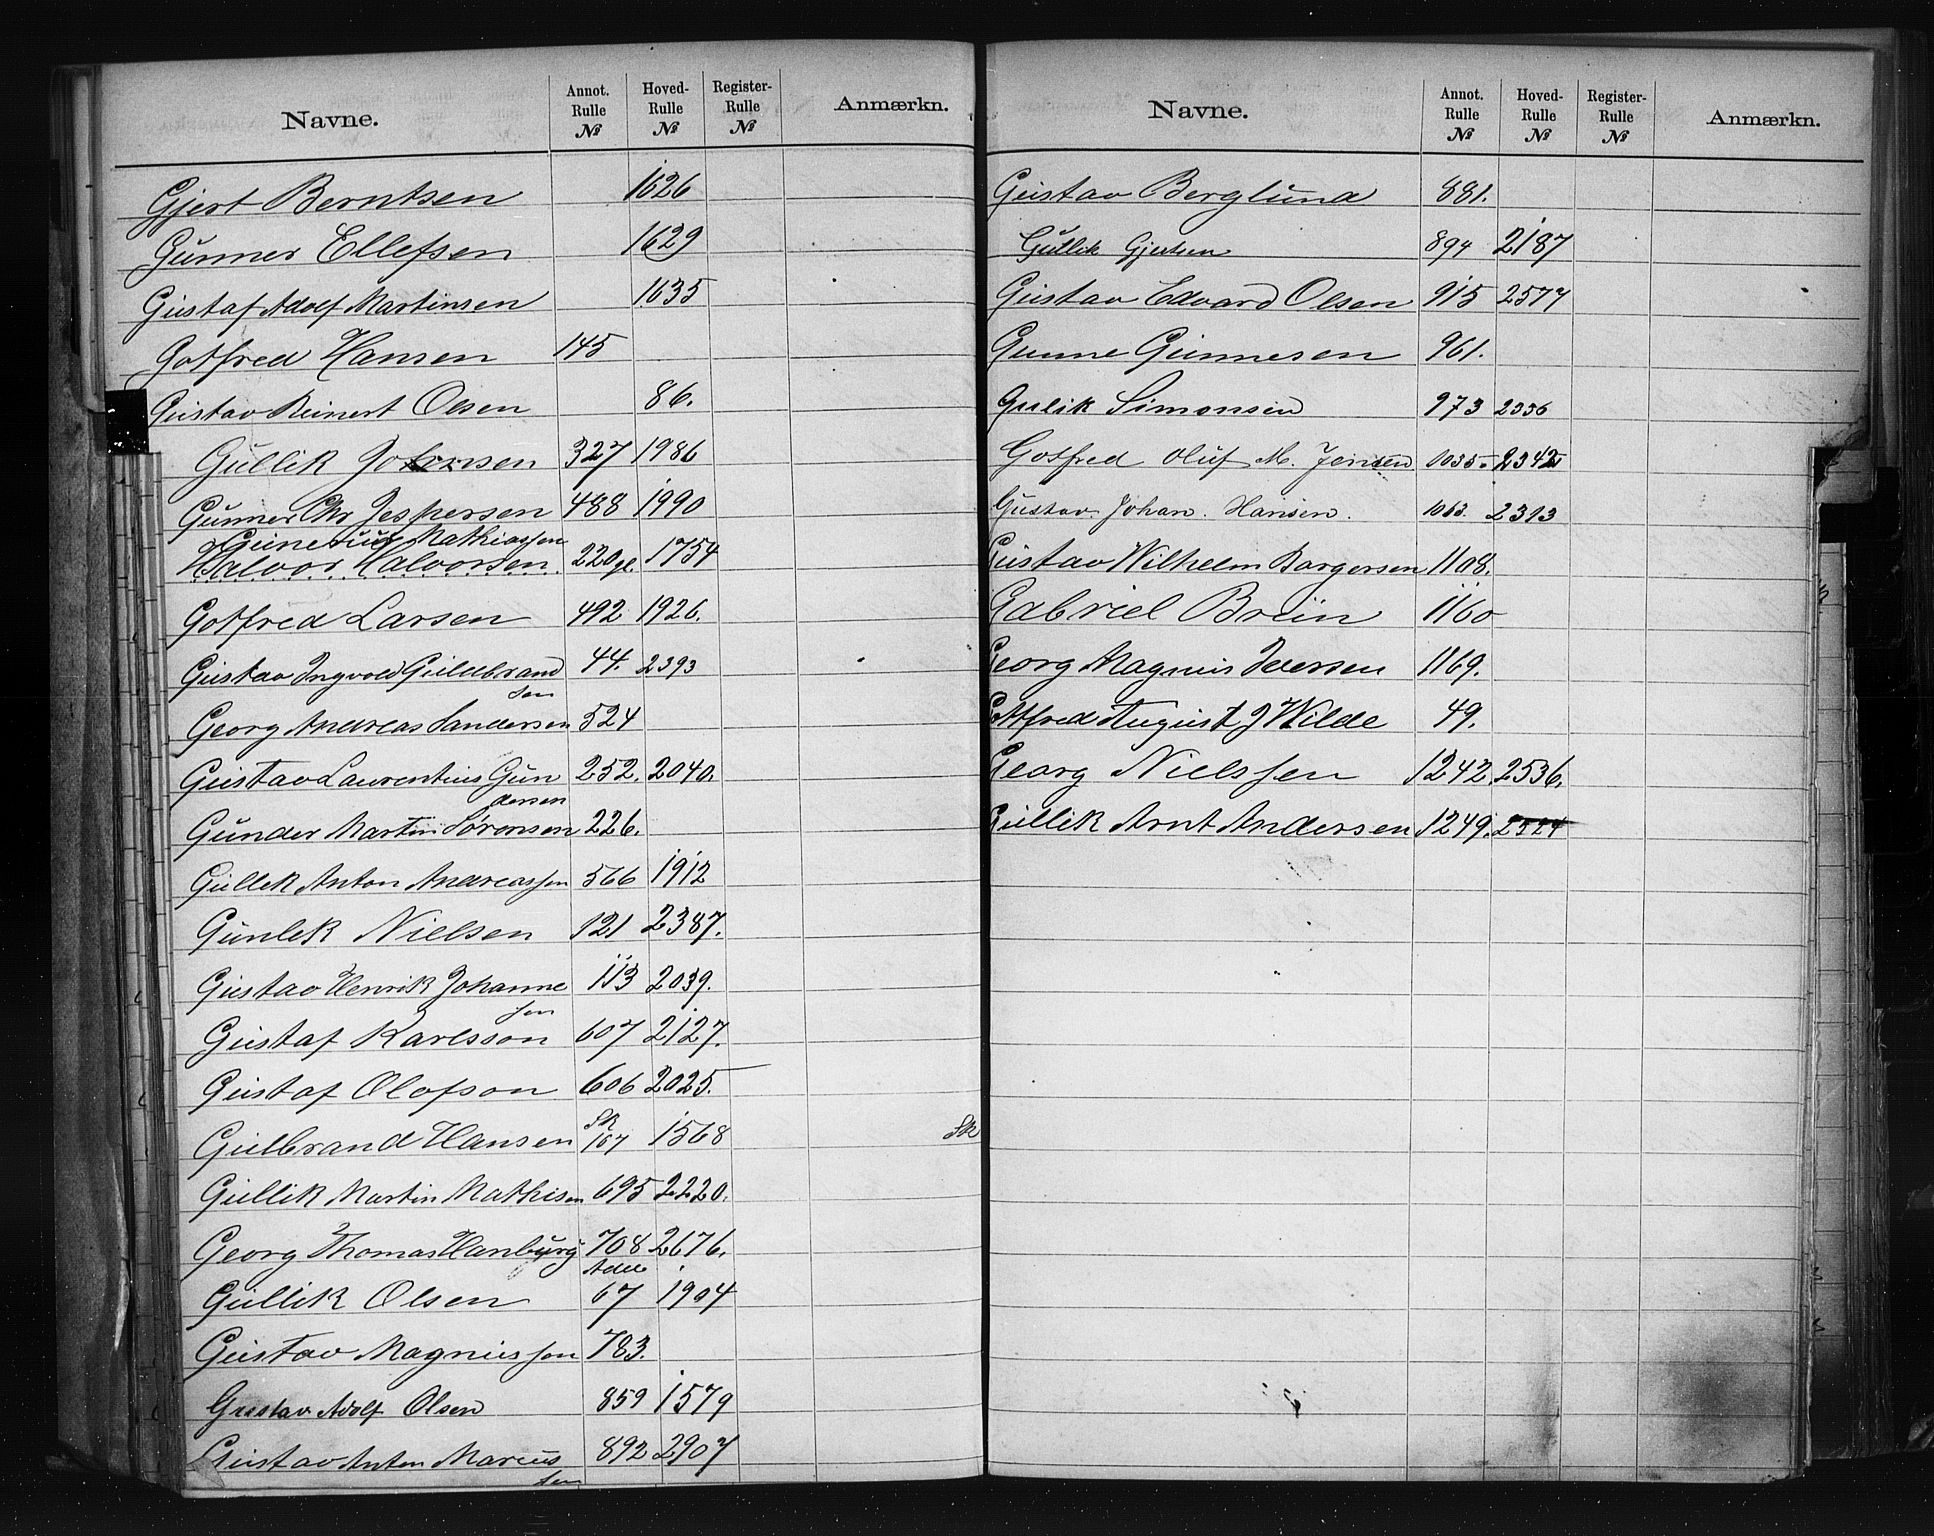 Navne. Annot. Rulle № Hoved- Rulle № Register- Rulle № Anmærkn.
Gjert Berntsen 1626
Gunner Ellefsen 1629
Gustaf Adolf Martinsen 1635
Gotfred Hansen 145
Gustav Reinert Olsen 86.
Gullik Johnsen 327 1986
Gunner Chr Jespersen 488 1990
Gunerius Mathiassen
Halvor Halvorsen. 220 gl. 1754
Gotfred Larsen 492 1926.
Gustav Ingvold Gullebrand 44. 2393
sen
Georg Andreas Sandersen 524
Gustav Laurentius Gun 252. 2040.
dersen
Gunder Martin Sörensen 226.
Gullek Anton Andreassen 566 1912
Gunlek Nielsen 121 2387.
Gustav Henrik Johanne 113 2039.
sen
Gustaf Karlsson 607 2127.
Gustaf Olofson 606 2025.
Sk Sk
Gulbrand Hansen 167 1568
Gullik Martin Mathisen 695 2220.
Georg Thomas Hanburg 708 2676.
Gullik Olsen 67 1904
Gustav Magnussen 783.
Gustav Adolf Olsen 859 1579
Gustav Anton Marcus 892 2907
sen
Navne. Annot. Rulle № Hoved- Rulle № Register- Rulle № Anmærkn.
Gustav Berglund 881.
Gullik Gjertsen 894 2187
Gustav Edvard Olsen 915 2577
Gunne Gunnesen 961.
Gulik Simonsen 973 2336
Gotfred Oluf M. Jensen 1035. 2342
Gustav. Johan. Hansen. 1063. 2313
Gustav Wilhelm Borgersen 1108.
Gabriel Bruin 1160
Georg Magnus Iversen 1169.
Gottfred August J Wilde 49.
Georg Nielssen 1242. 2536.
Gullik Arnt Andersen 1249. 2524